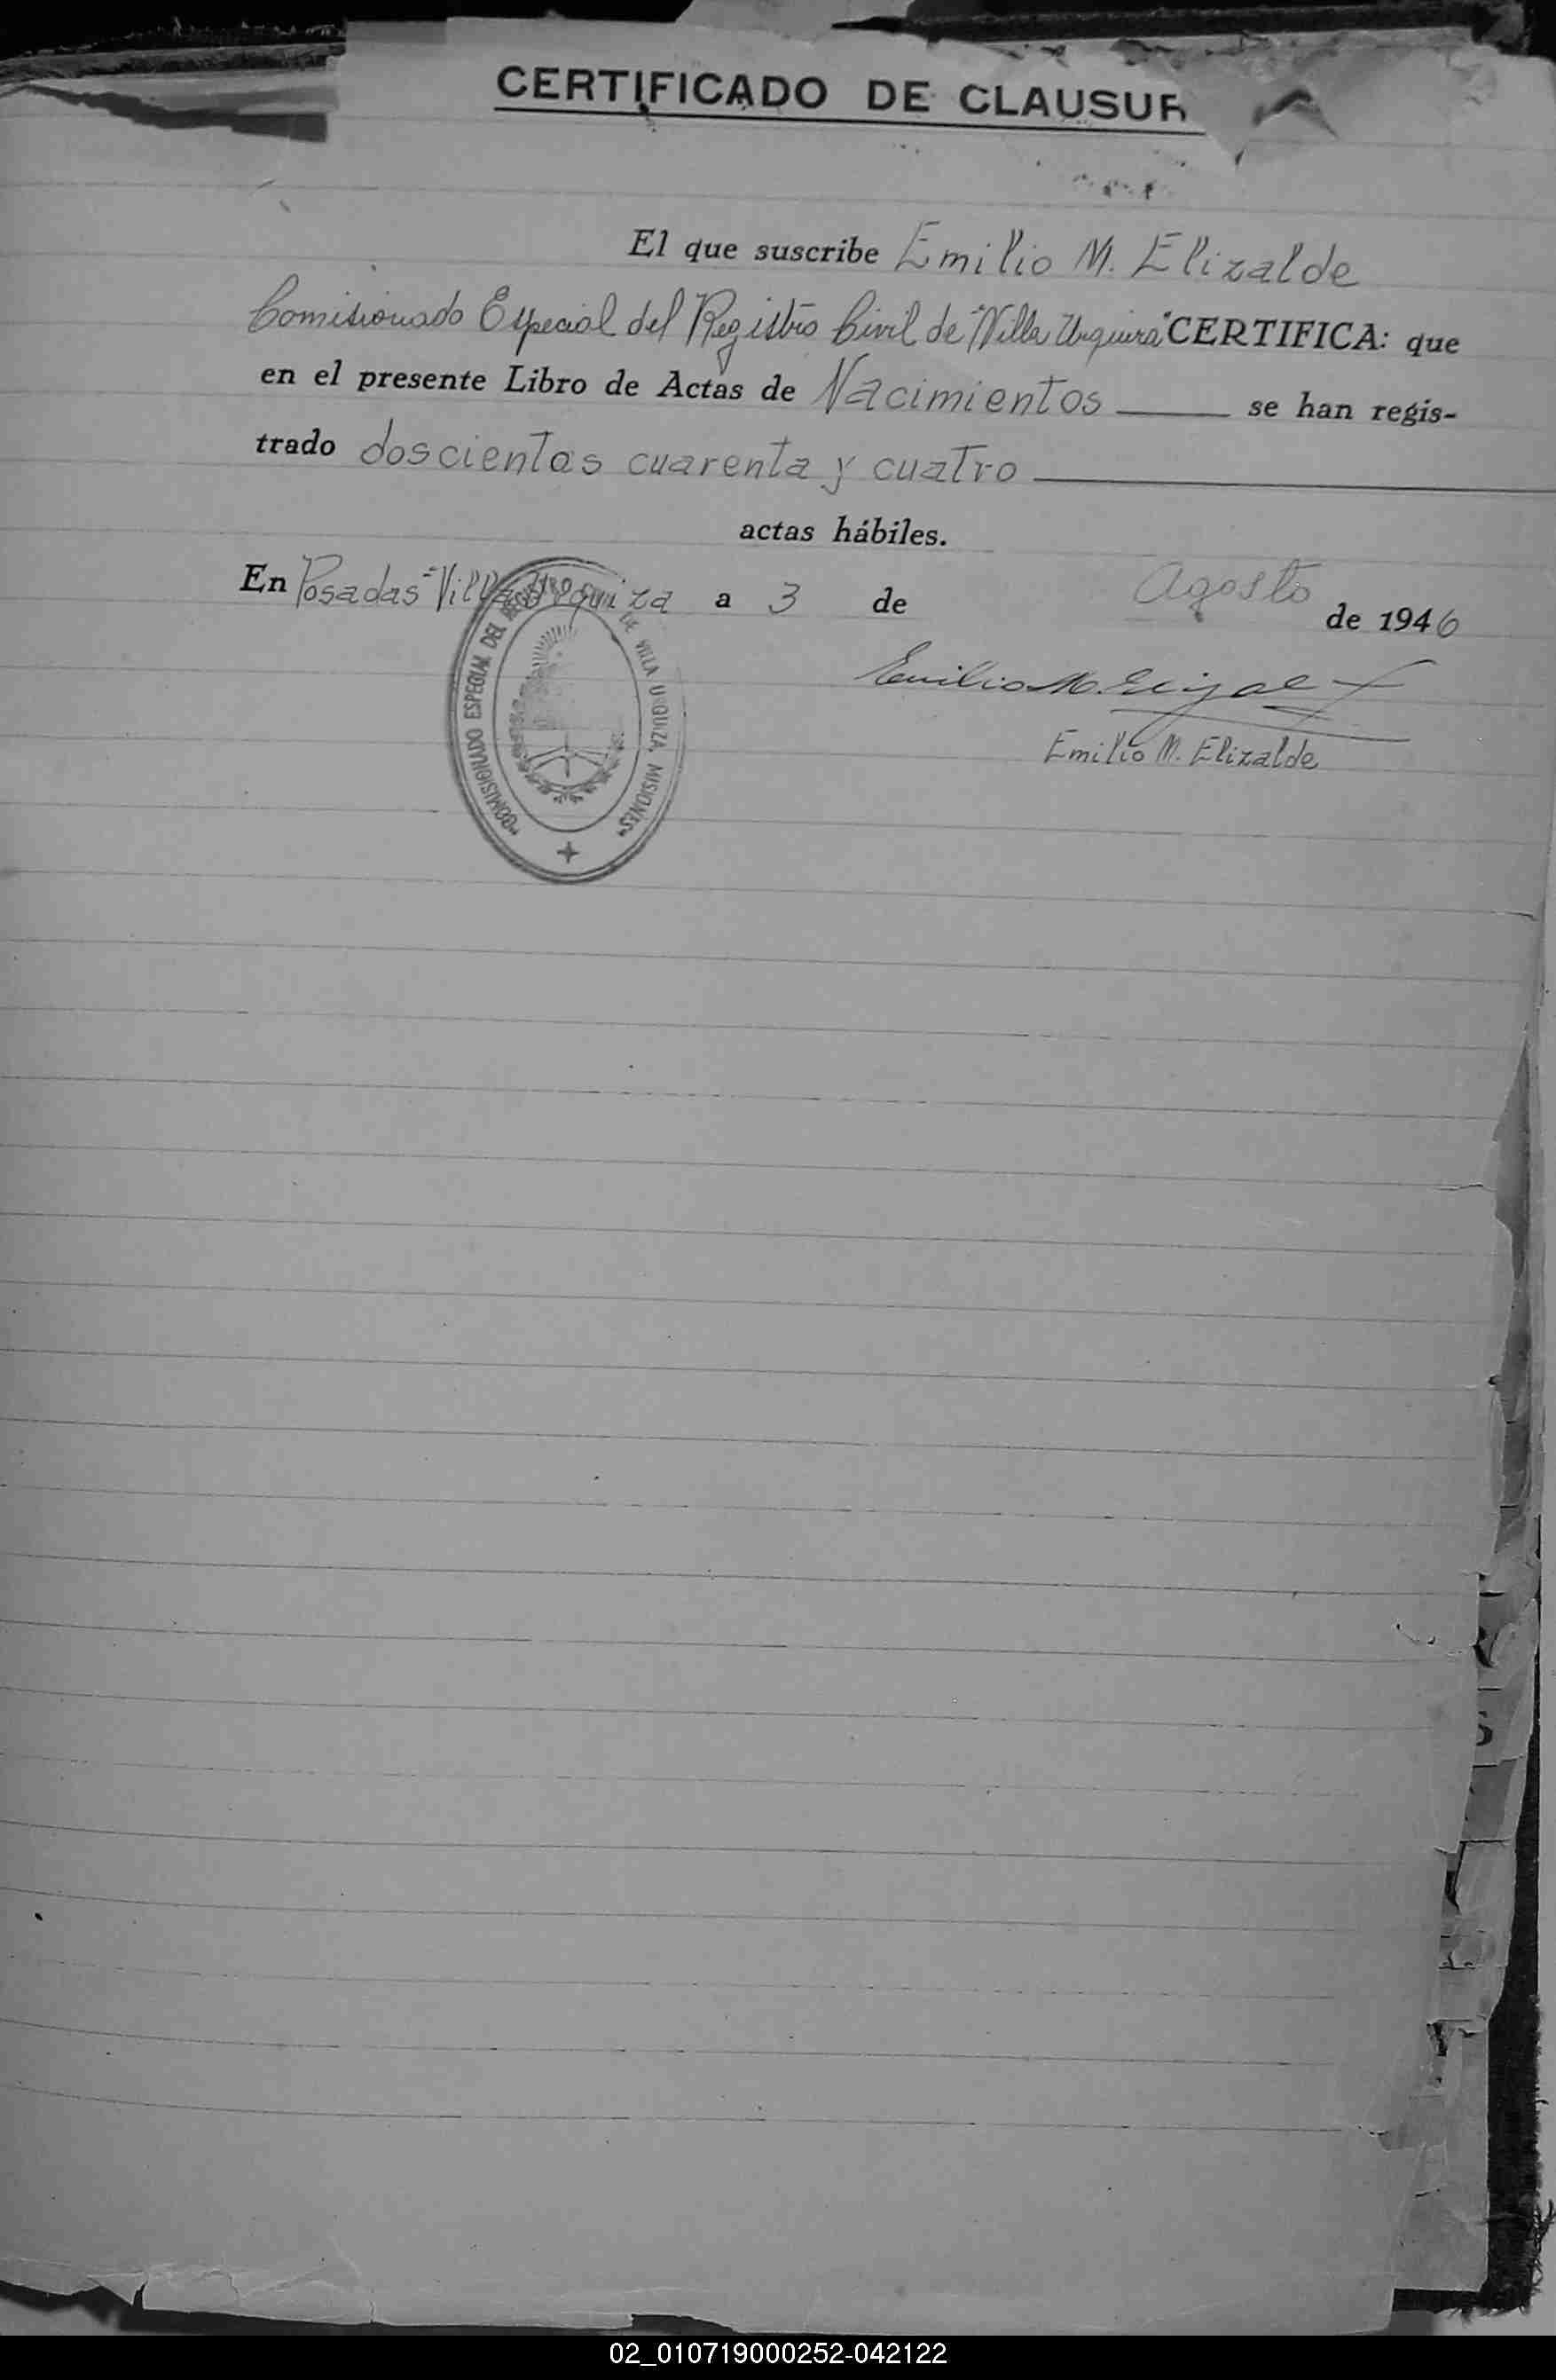 CERTIFICADO DE CLAUSUR
El que suscribe Emilio M. Elizalde
Comisionado Especial del Registro Civil de "Villa Urquiza" CERTIFICA: que
en el presente Libro de Actas de Nacimientos se han regis-
trado doscientas cuarenta y cuatro
actas hábiles.
En Posadas = Villa Urquiza a 3 de Agosto de 1946
Emilio M. Elizalde
Emilio M. Elizalde
COMISIONADO ESPECIAL DEL REGISTRO DE VILLA URQUIZA, MISIONES
02_010719000252-042122